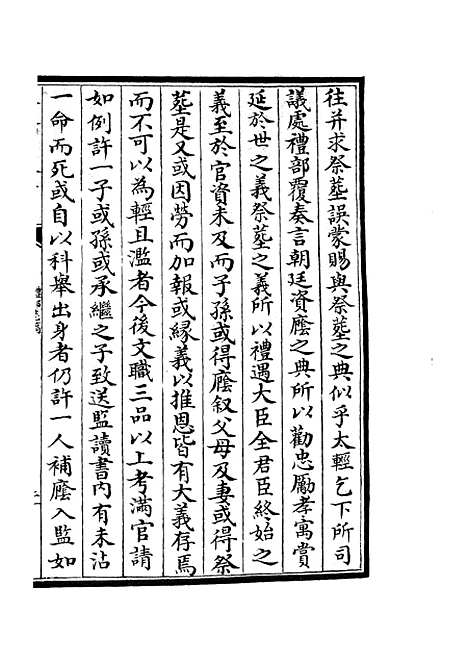 往并求祭塟誤蒙賜與祭塟之典似乎太輕乞下所司
議處禮部覆奏言朝廷資廕之典所以勸忠勵孝寓賞
延於世之義祭塟之義所以禮遇大臣全君臣終始之
義至於官資未及而子孫或得廕叙父母及妻或得祭
塟是又或因勞而加報或緣義以推恩皆有大義存焉
而不可以為輕且濫者今後文職三品以上考滿官請
如例許一子或孫或承繼之子致送監讀書內有未沾
一命而死或自以科舉出身者仍許一人補廕入監如